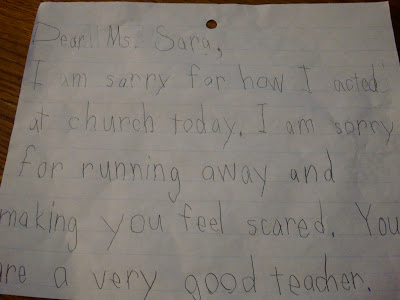 Dear Ms. Sara,
I am sorry for how I acted
at church today. I am sorry
for running away and
making you feel scared. You
are a very good teacher.